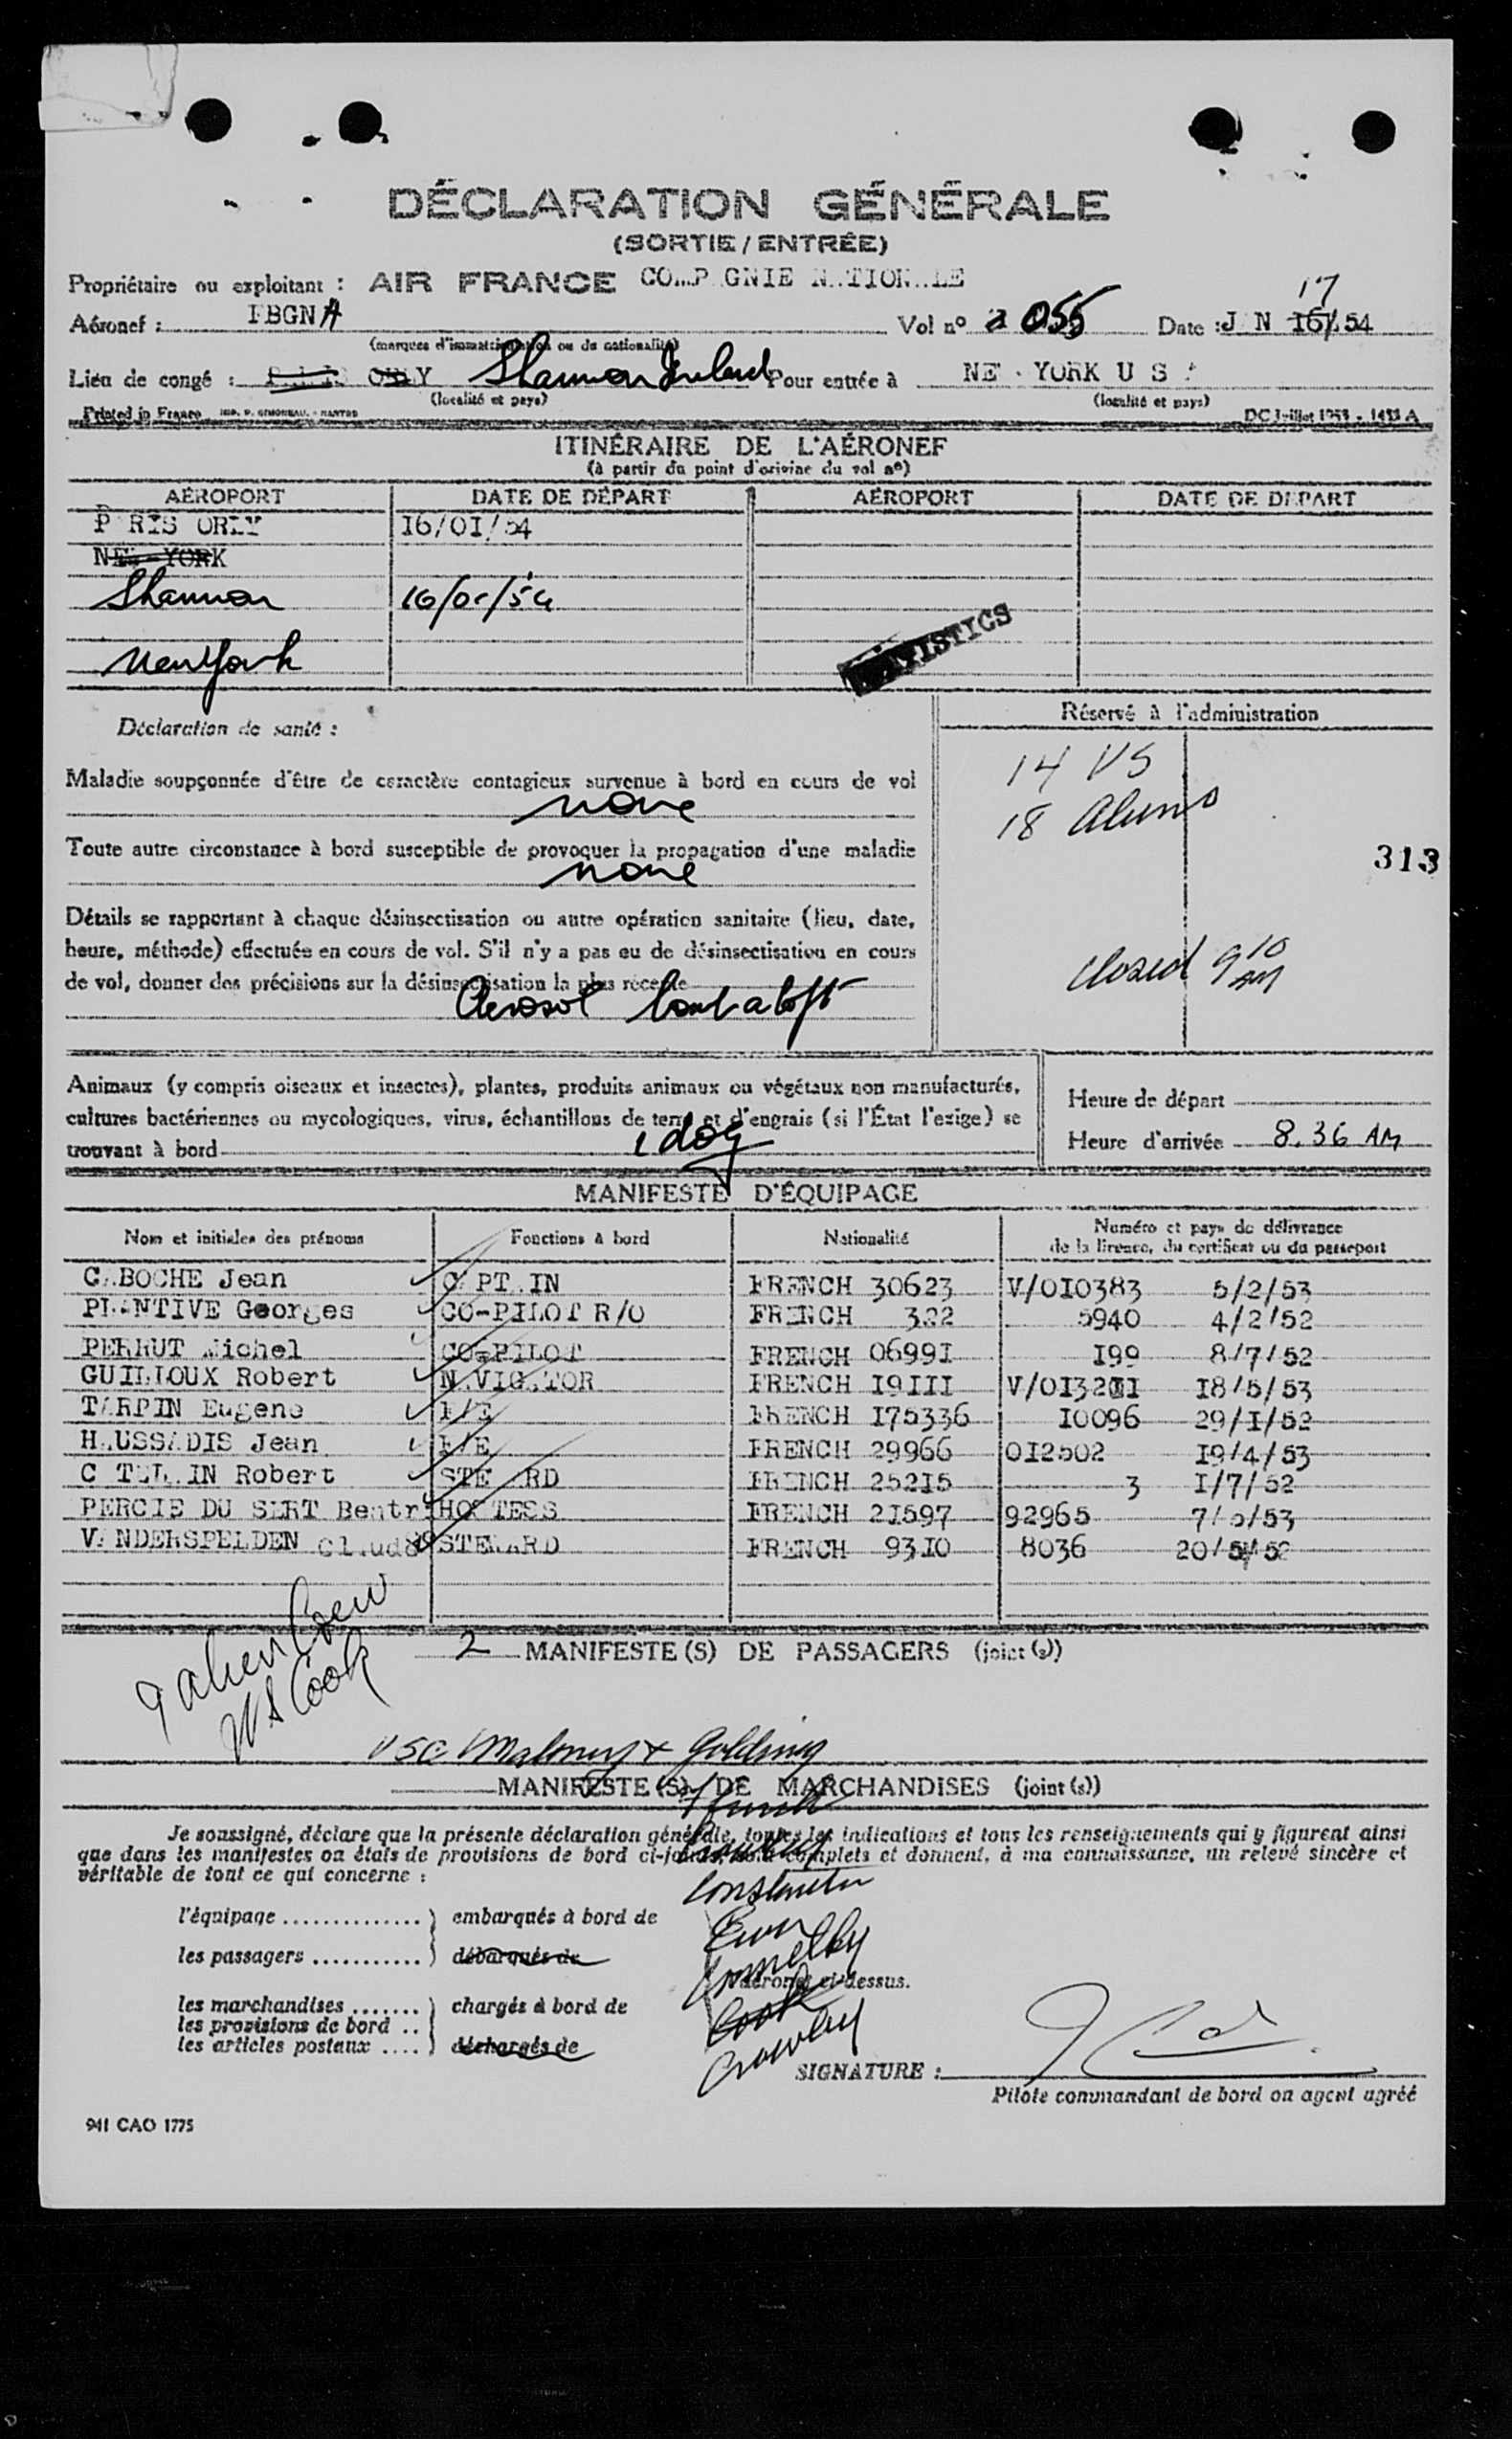 DÉCLARATION GÉNÉRALE
(SORTIE / ENTRÉE)
Propriétaire ou exploitant : AIR FRANCE COMPAGNIE NATIONALE
17
Aéronef : FBGNA Vol nº 055 Date : JAN 16/54
(marques d'immatriculation ou de nationalité)
Lieu de congé : PARIS ORLY Shannon Ireland Pour entrée à NEW YORK U S A
(localité et pays) (localité et pays)
Printed in France IMP. P. SIMONEAU. - NANTES DC Juillet 1953 - 1453 A
ITINÉRAIRE DE L'AÉRONEF
(à partir du point d'origine du vol nº)
AÉROPORT DATE DE DÉPART AÉROPORT DATE DE DÉPART
PARIS ORLY I6/OI/54
NEW YORK
Shannon 16/01/54
New York
STATISTICS
Déclaration de santé : Réservé à l'administration
14 US
Maladie soupçonnée d'être de caractère contagieux survenue à bord en cours de vol
none
18 Aliens
Toute autre circonstance à bord susceptible de provoquer la propagation d'une maladie
none
313
Détails se rapportant à chaque désinsectisation ou autre opération sanitaire (lieu, date,
heure, méthode) effectuée en cours de vol. S'il n'y a pas eu de désinsectisation en cours
de vol, donner des précisions sur la désinsectisation la plus récente
closed 9 10 AM
Aerosol bomb aloft
Animaux (y compris oiseaux et insectes), plantes, produits animaux ou végétaux non manufacturés,
cultures bactériennes ou mycologiques, virus, échantillons de terre et d'engrais (si l'État l'exige) se
trouvant à bord 1 dog
Heure de départ
Heure d'arrivée 8.36 AM
MANIFESTE D'ÉQUIPAGE
Nom et initiales des prénoms Fonctions à bord Nationalité Numéro et pays de délivrance
de la licence, du certificat ou du passeport
CABOCHE Jean CAPTAIN FRENCH 30623 V/OI0383 5/2/53
PLANTIVE Georges CO-PILOT R/O FRENCH 322 5940 4/2/52
PERRUT Michel CO-PILOT FRENCH 0699I I99 8/7/52
GUILLOUX Robert NAVIGATOR FRENCH I9III V/OI32II I8/5/53
TARPIN Eugene F/E FRENCH I75336 I0096 29/I/52
HAUSSADIS Jean F/E FRENCH 29966 0I2502 I9/4/53
Robert STEWARD FRENCH 252I5 3 I/7/52
PERCIE DU SERT Beatr HOSTESS FRENCH 2I597 92965 7/5/53
VANDERSPELDEN Claude STEWARD FRENCH 93I0 8036 20/5/52
9 alien Crew
W S Cook
2 MANIFESTE (S) DE PASSAGERS (joint (s))
USC Maloney + Golding
MANIFESTE (S) DE MARCHANDISES (joint (s))
Je soussigné, déclare que la présente déclaration générale, toutes les indications et tous les renseignements qui y figurent ainsi
que dans les manifestes ou états de provisions de bord ci-joints, sont complets et donnent, à ma connaissance, un relevé sincère et
véritable de tout ce qui concerne :
l'équipage .............. ) embarqués à bord de
les passagers ........... ) débarqués de
l'aéronef ci-dessus.
les marchandises ....... ) chargés à bord de
les provisions de bord ..
les articles postaux .... ) déchargés de
Cook
Crowley
SIGNATURE :
Pilote commandant de bord ou agent agréé
941 CAO 1775